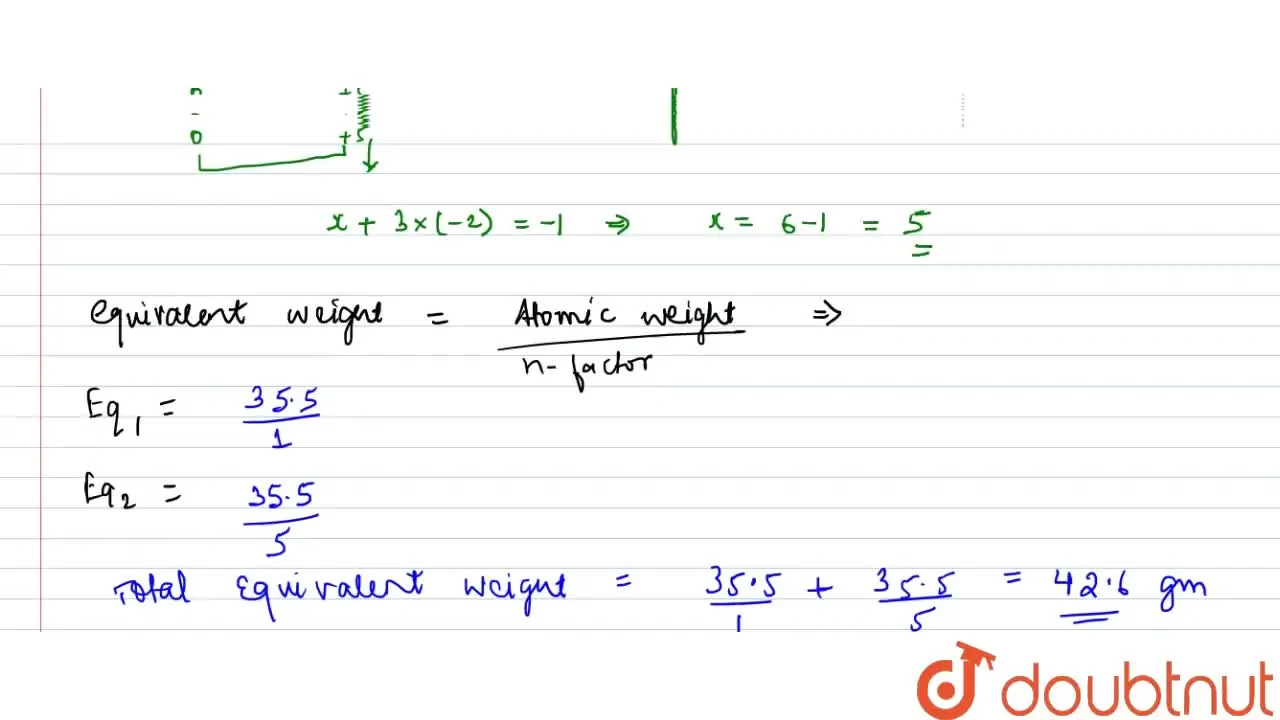 0 +5
x + 3×(-2) = -1 ⇒ x = 6-1 = 5
equivalent weight = Atomic weight / n-factor ⇒
Eq1 = 35.5 / 1
Eq2 = 35.5 / 5
Total Equivalent weight = 35.5 / 1 + 35.5 / 5 = 42.6 gm
doubtnut